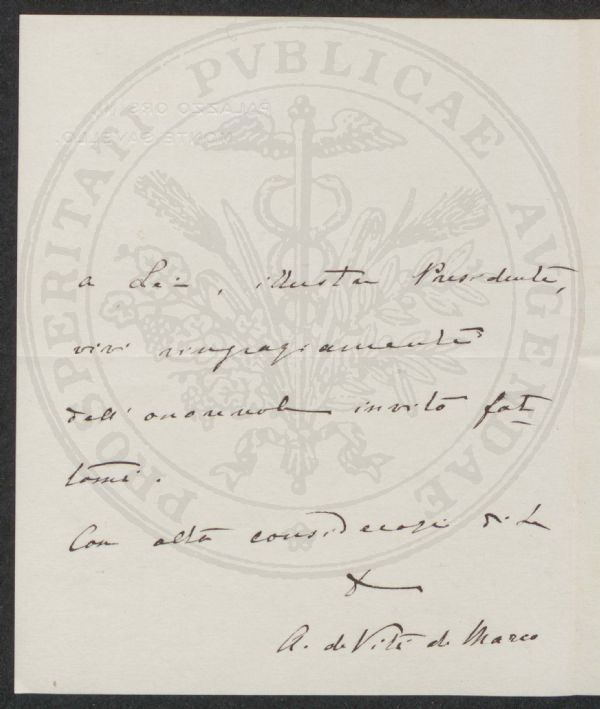 PROSPERITATI PVBLICAE AVGENDAE
PALAZZO ORSINI
MONTE SAVELLO.
a Lei, illustre Presidente,
vivi ringraziamenti
dell'onorevole invito fat
tomi.
Con alta considerazione
A. de Viti de Marco